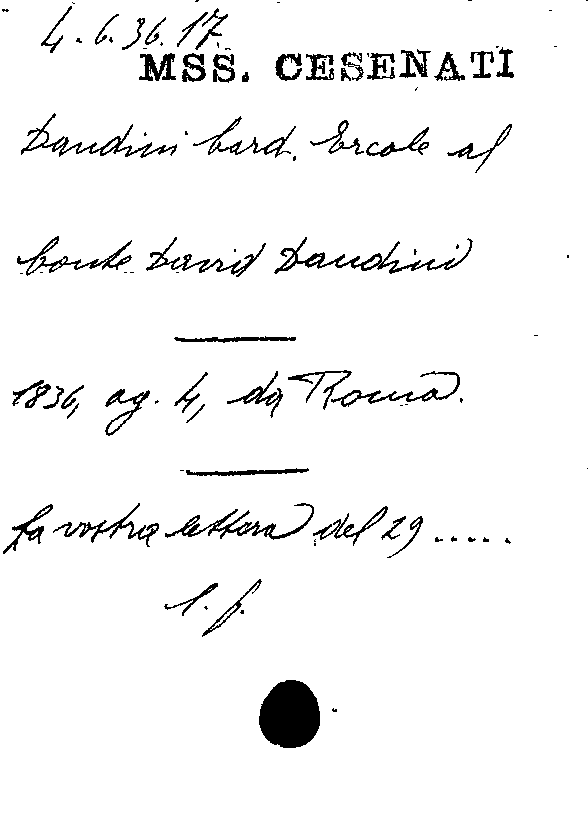 4.6.36.17.
MSS. CESENATI
Dandini Card. Ercole al
Conte David Dandini
1836, ag. 4, da Roma.
La vostra lettera del 29 .....
l. f.